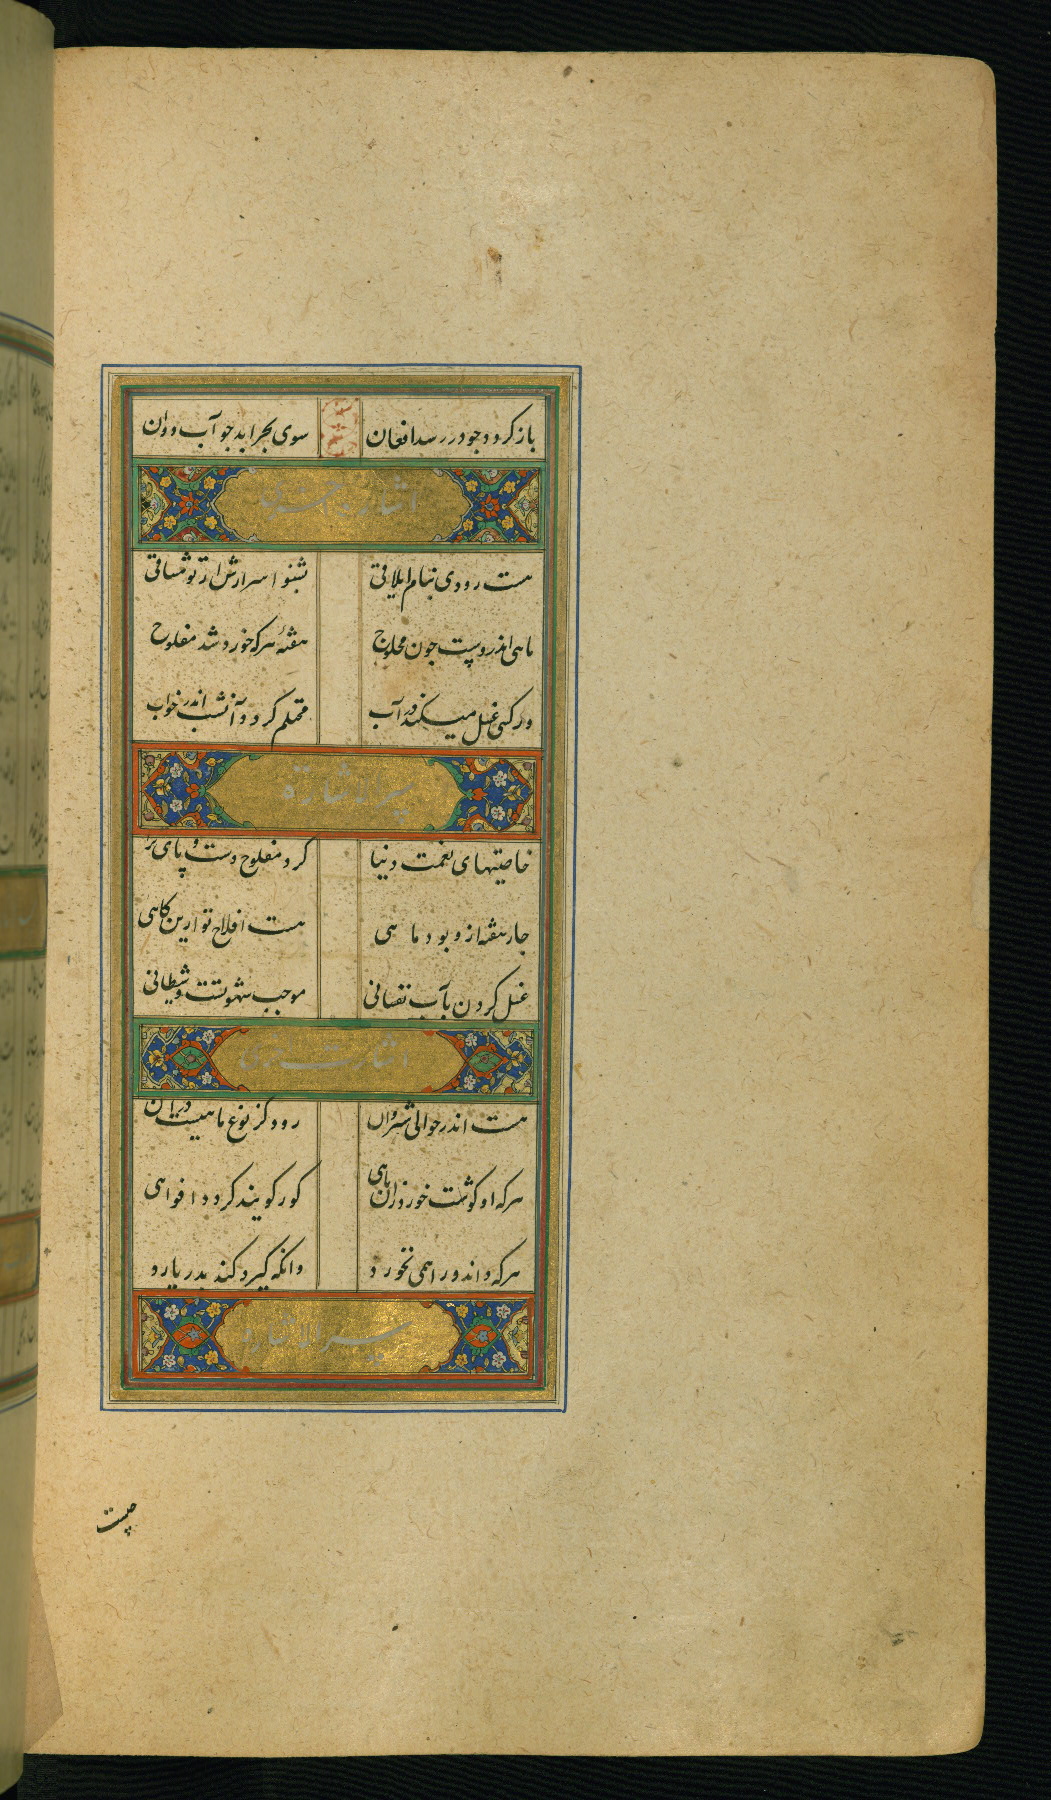 باز کردد جو در رسد افغان سوی بحر ابد جو آب روان
اشارت
هست رودی بنام ایلاقی بشنو اسرارش ار تو مشتاقی
ماهی اندروست جون محلوج هفتهٔ هرکه خورد شد مفلوح
ور کسی غسل میکند در آب محتلم کردد آنشب اندر خواب
سر الاشارة
خاصیتهای نعمت دنیا کرد مفلوح دست و پای ترا
جار هفته از و بود ماهی هست افلاح تو ازین کاهی
غسل کردن بآب نفسانی موجب شهوتست و شیطانی
اشارت
هست اندر حوالی شروان رود کز نوع ماهیست در آن
هرکه او کوشت خورد زان ماهی کور کویند کردد افواهی
هرکه داند ورا همی نخورد وانکه کیرد کند بدریا رد
سر الاشارة
چیست